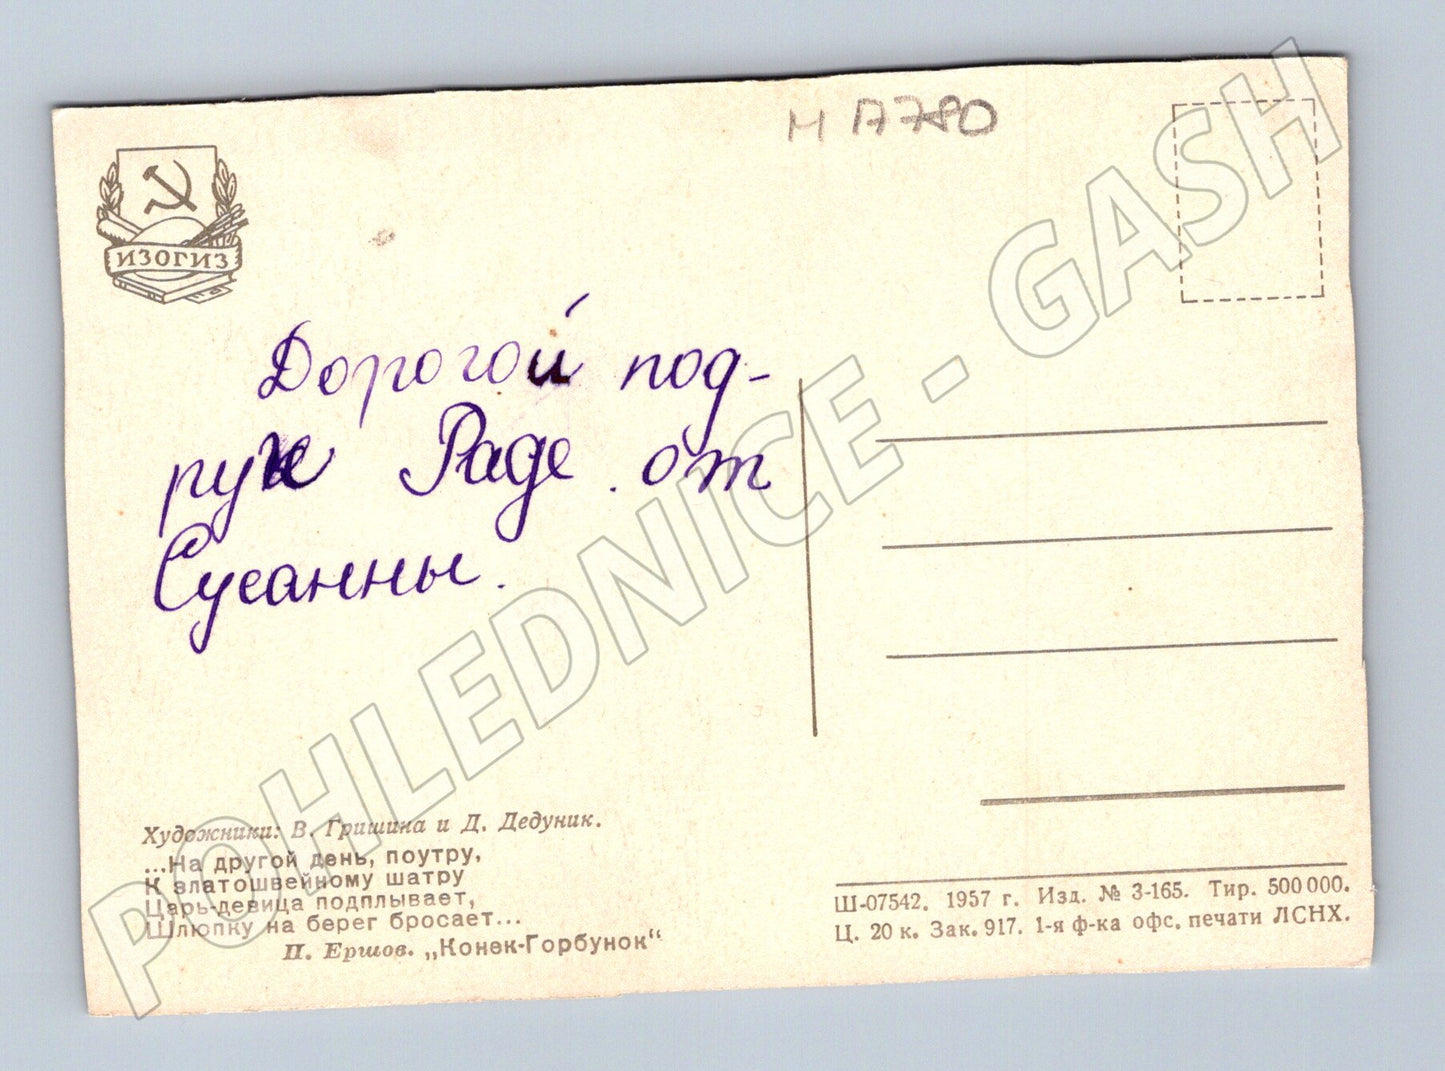 М А780
ИЗОГИЗ
Дорогой под-
руге Раде от
Сусанны.
Художники: В. Гришина и Д. Дедуник.
...На другой день, поутру,
К златошвейному шатру
Царь-девица подплывает,
Шлюпку на берег бросает...
П. Ершов. „Конек-Горбунок“
Ш-07542. 1957 г. Изд. № 3-165. Тир. 500 000.
Ц. 20 к. Зак. 917. 1-я ф-ка офс. печати ЛСНХ.
POHLEDNICE - GASH